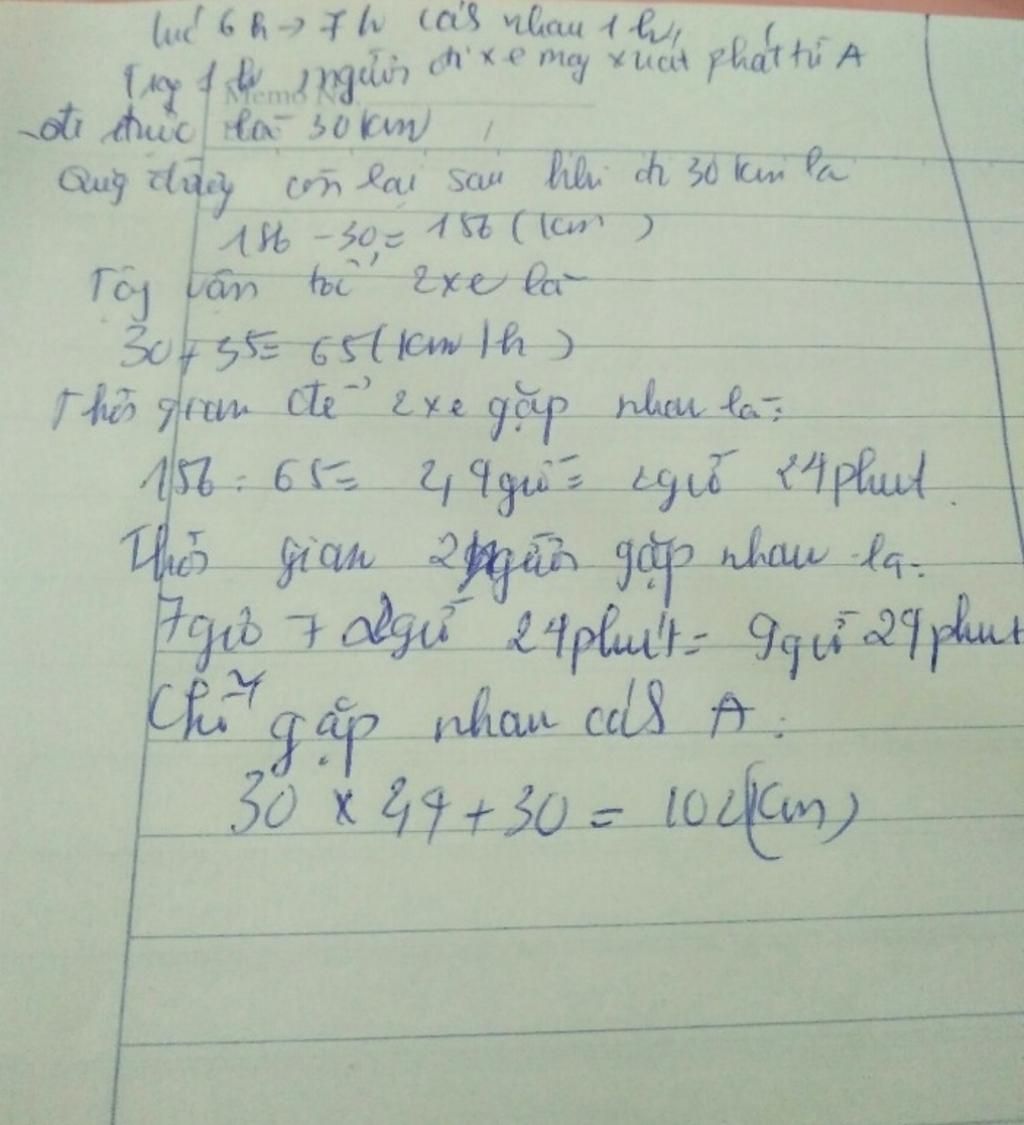 lúc 6h → 7h cách nhau 1h,
Trg 1h, 1 người đi xe máy xuất phát từ A
Memo No.
đi được là 30km
Quãg đườg còn lại sau khi đi 30 km là
186 - 30 = 156 (km)
Tổg vân tốc 2 xe là
30 + 35 = 65 (km/h)
Thời gian để 2 xe gặp nhau là:
156 : 65 = 2,4 giờ = 2 giờ 24 phút
Thời gian 2 người gặp nhau là:
7 giờ + 2 giờ 24 phút = 9 giờ 24 phút
Chỗ gặp nhau các A:
30 x 2,4 + 30 = 102 (km)